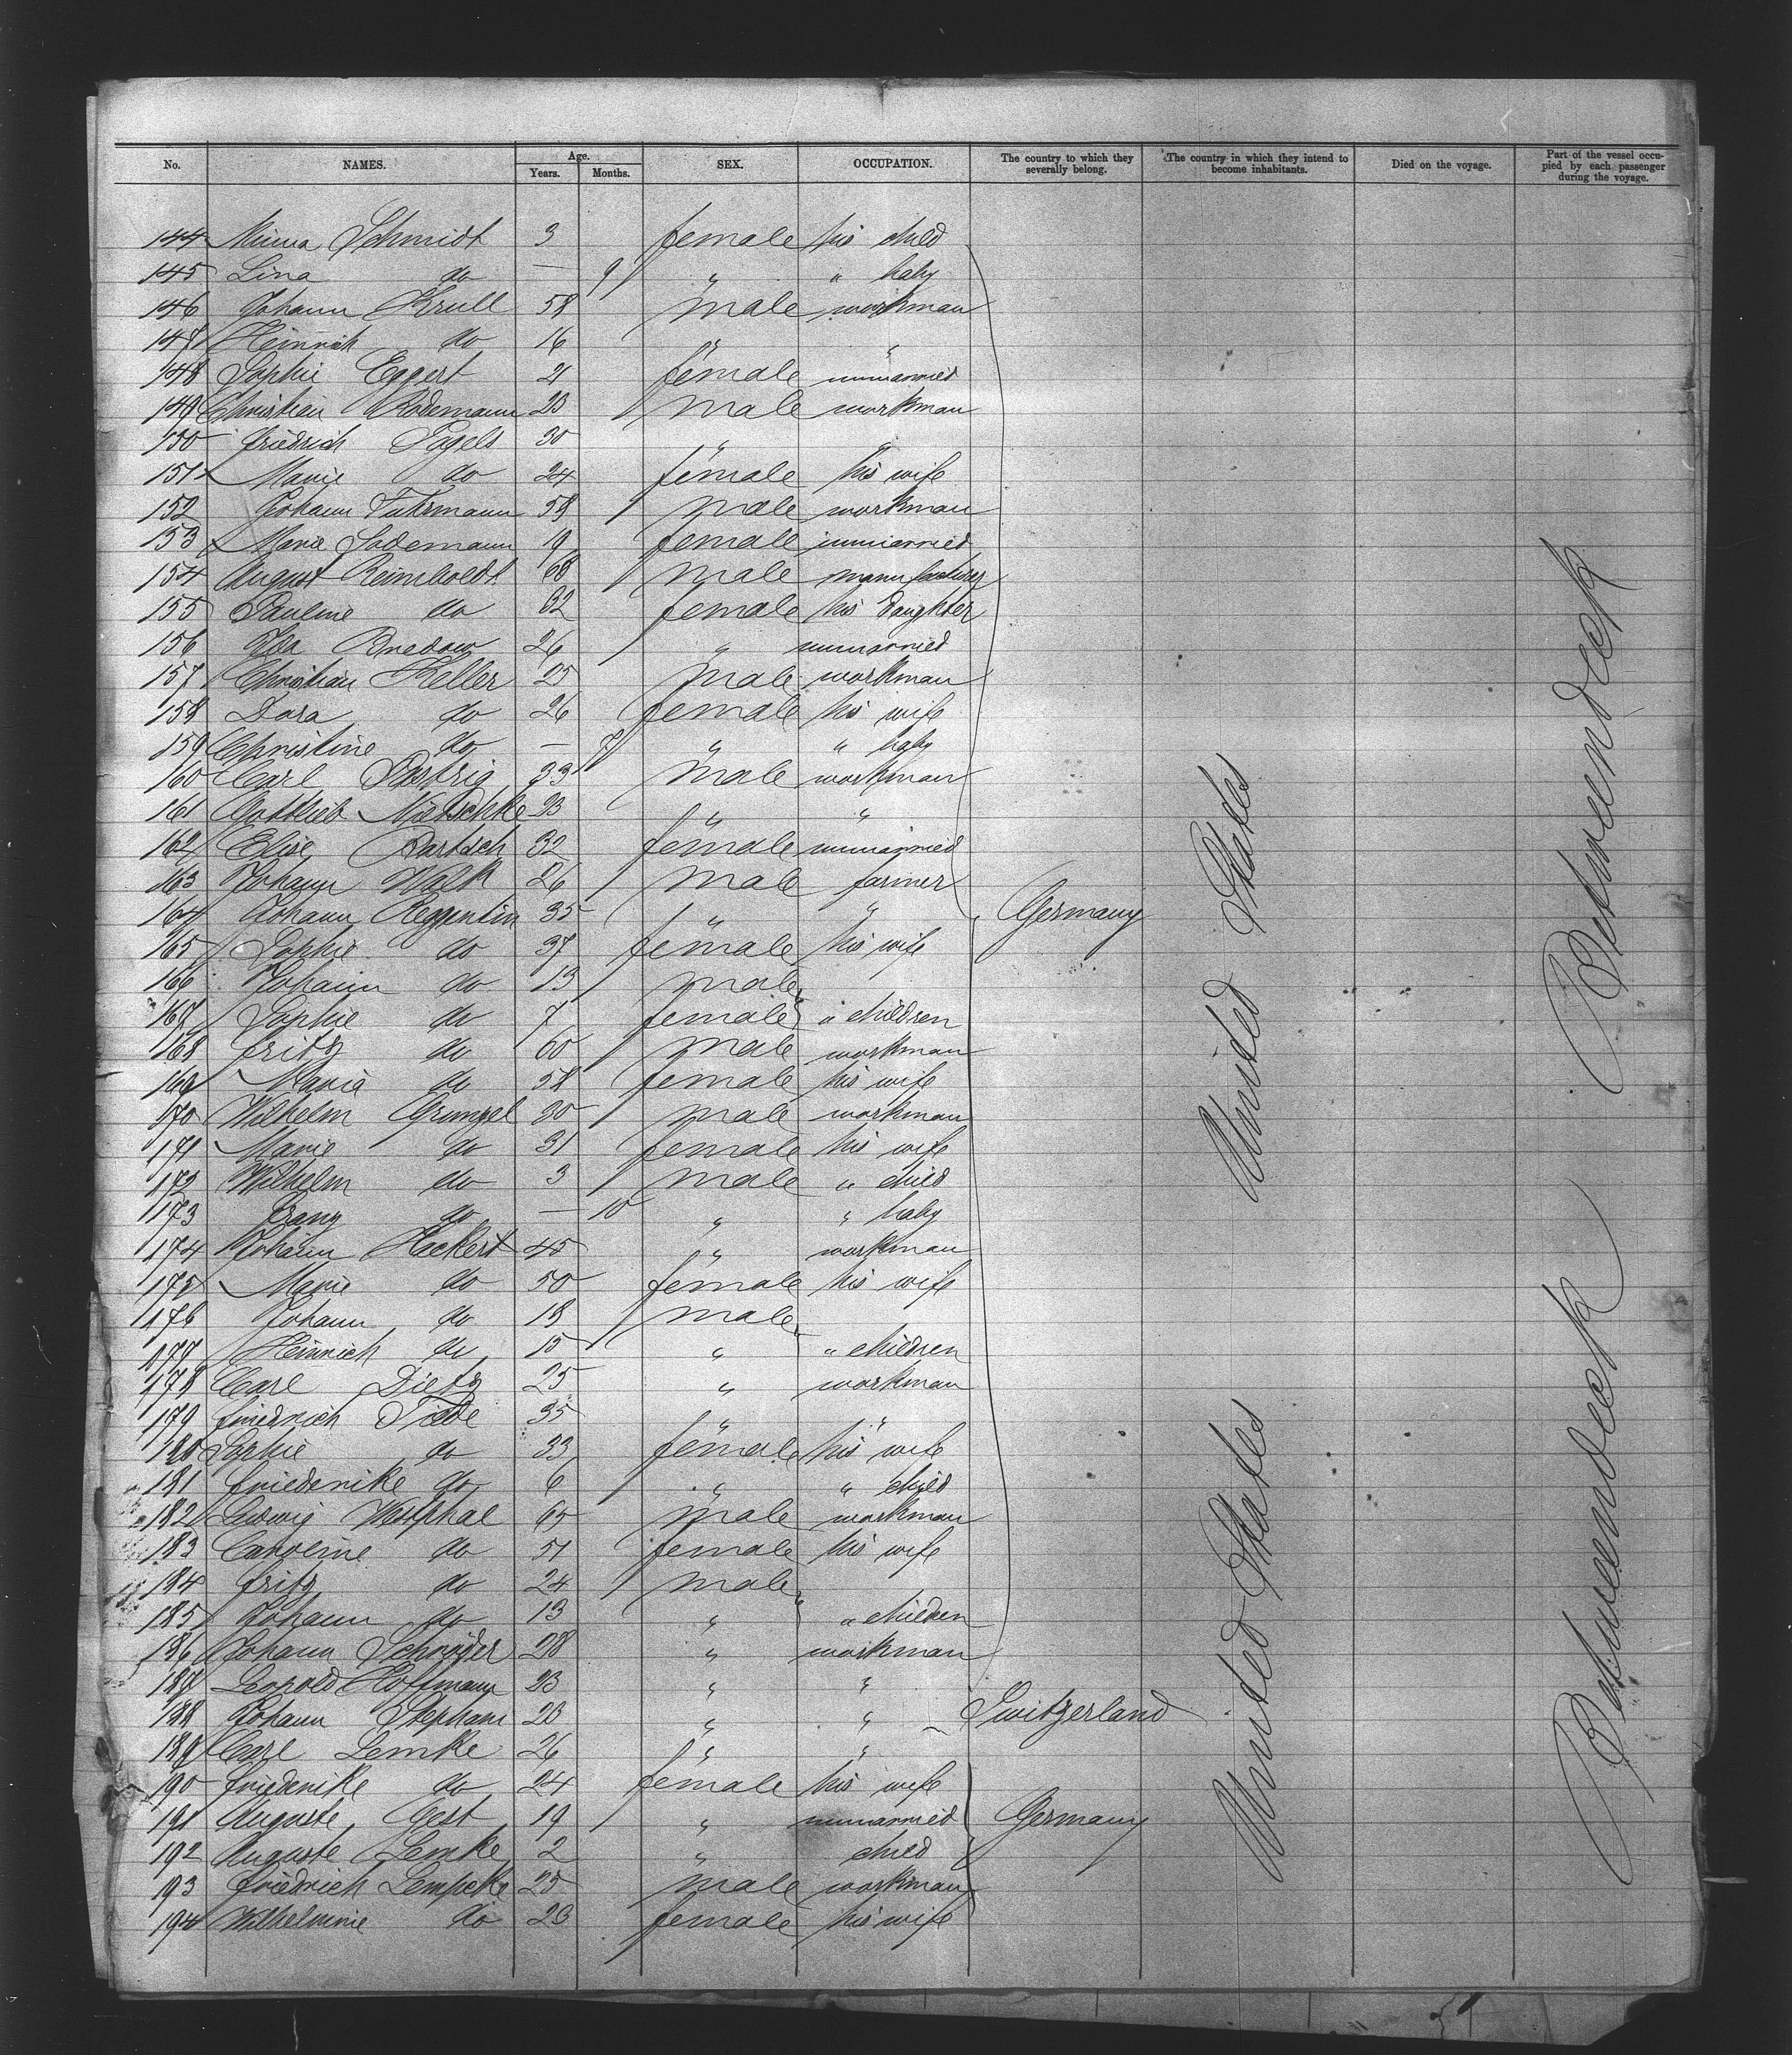 No. NAMES. Age. Years. Months. SEX. OCCUPATION. The country to which they severally belong. The country in which they intend to become inhabitants. Died on the voyage. Part of the vessel occupied by each passenger during the voyage.
144 Minna Schmidt 3 female his child
145 Lina do — 9 " " baby
146 Johann Krull 58 male workman
147 Heinrich do 16 " "
148 Sophie Eggert 21 female unmarried
149 Christian Rodemann 23 male workman
150 Friedrich Pagels 30 " "
151 Marie do 24 female his wife
152 Johann Fuhrmann 58 male workman
153 Marie Lademann 19 female unmarried
154 August Reimboldt 68 male manufacturer
155 Pauline do 32 female his daughter
156 Ida Bredow 26 " unmarried
157 Christian Keller 25 male workman
158 Dora do 26 female his wife
159 Christine do — 7 " " baby
160 Carl 33 male workman
161 Gottlieb Nietschke 23 " "
162 Elise Bartsch 32 female unmarried
163 Johann Walk 26 male farmer
164 Johann Reggentin 35 " " Germany
165 Sophie do 37 female his wife
166 Johann do 13 male
167 Sophie do 7 female " children
168 Fritz do 60 male workman
169 Marie do 58 female his wife
170 Wilhelm Grunzel 30 male workman
171 Marie do 31 female his wife
172 Wilhelm do 3 male " child
173 Franz do — 10 " " baby
174 Johann Heckert 45 " workman
175 Marie do 50 female his wife
176 Johann do 18 male
177 Heinrich do 15 " " children
178 Carl Dietz 25 " workman
179 Friedrich Tiede 35 " "
180 Sophie do 33 female his wife
181 Friederike do 6 " " child
182 Ludwig Westphal 65 male workman
183 Caroline do 51 female his wife
184 Fritz do 24 male
185 Johann do 13 " " children
186 Johann Schröder 28 " workman
187 Leopold Hoffmann 23 " "
188 Johann Stephani 23 " " Switzerland
189 Carl Lemke 26 " "
190 Friederike do 24 female his wife
191 Auguste Gest 19 " unmarried Germany
192 Auguste Lemke 2 " child
193 Friedrich Lempcke 25 male workman
194 Wilhelmine do 23 female his wife
United States
United States
Betweendeck
Betweendeck